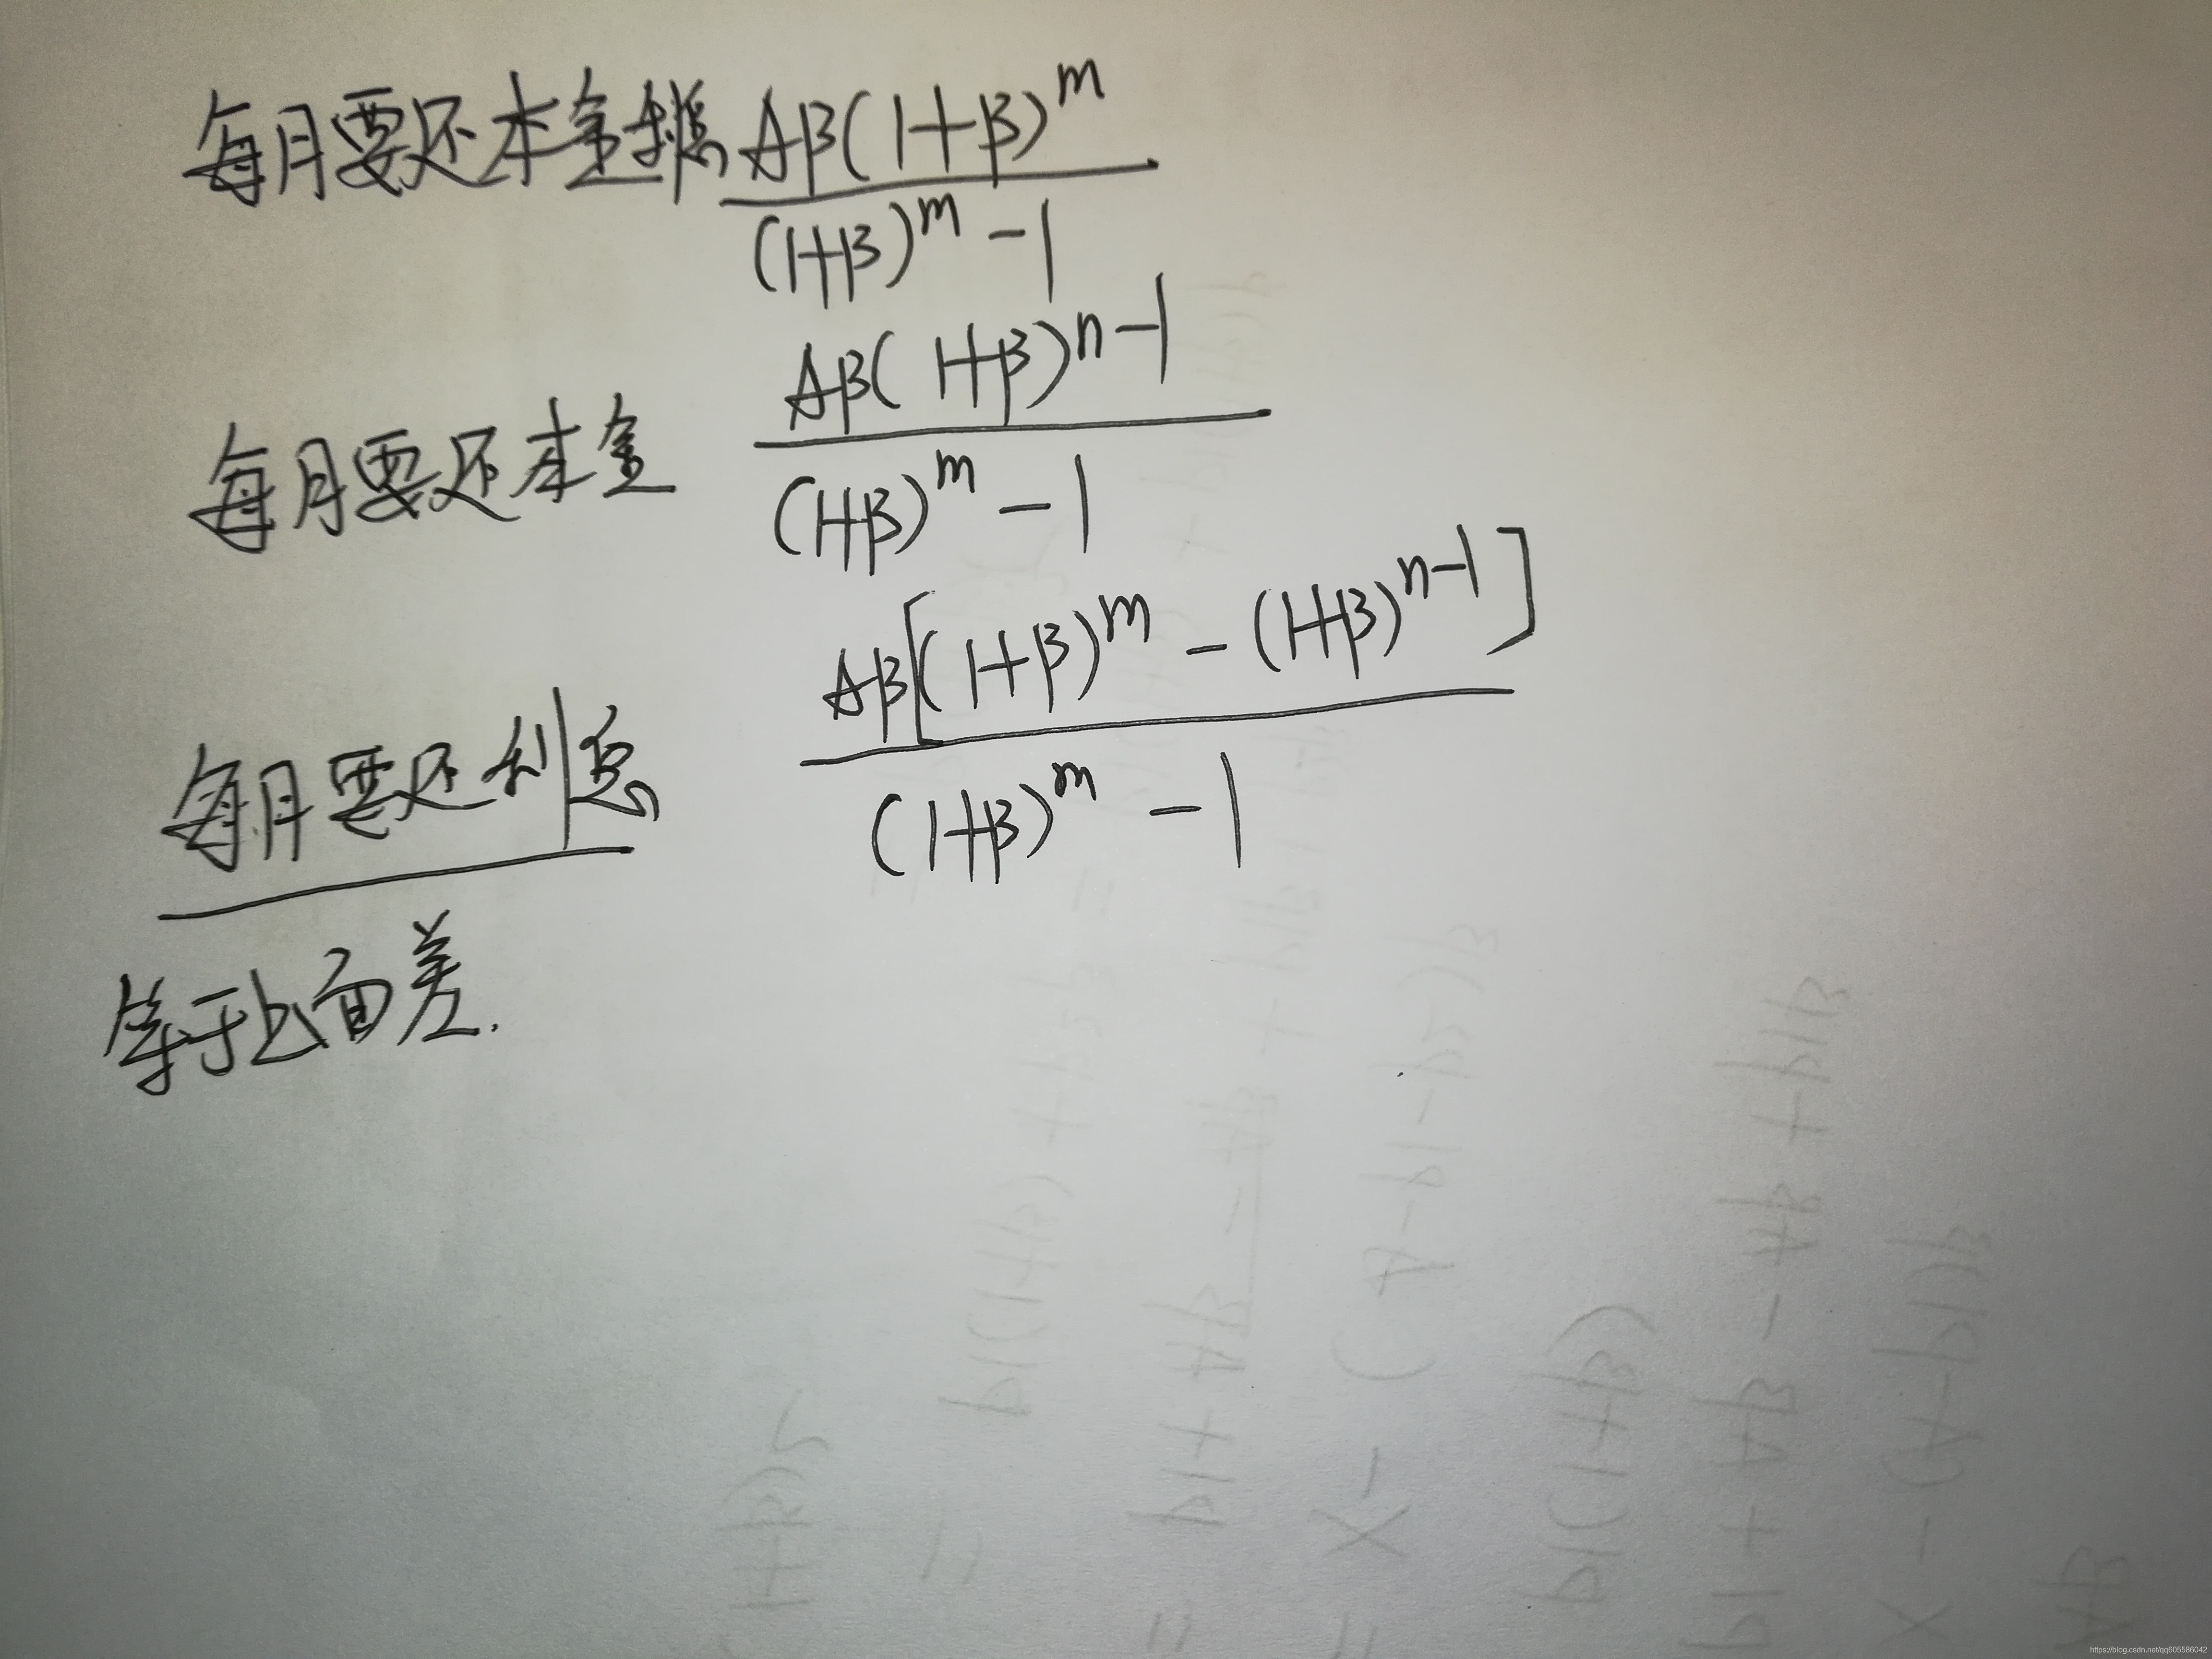 每月要还本金利息 Aβ(1+β)^m / (1+β)^m - 1
每月要还本金 Aβ(1+β)^(n-1) / (1+β)^m - 1
每月要还利息 Aβ[(1+β)^m - (1+β)^(n-1)] / (1+β)^m - 1
等于上面差.
https://blog.csdn.net/qq605586042